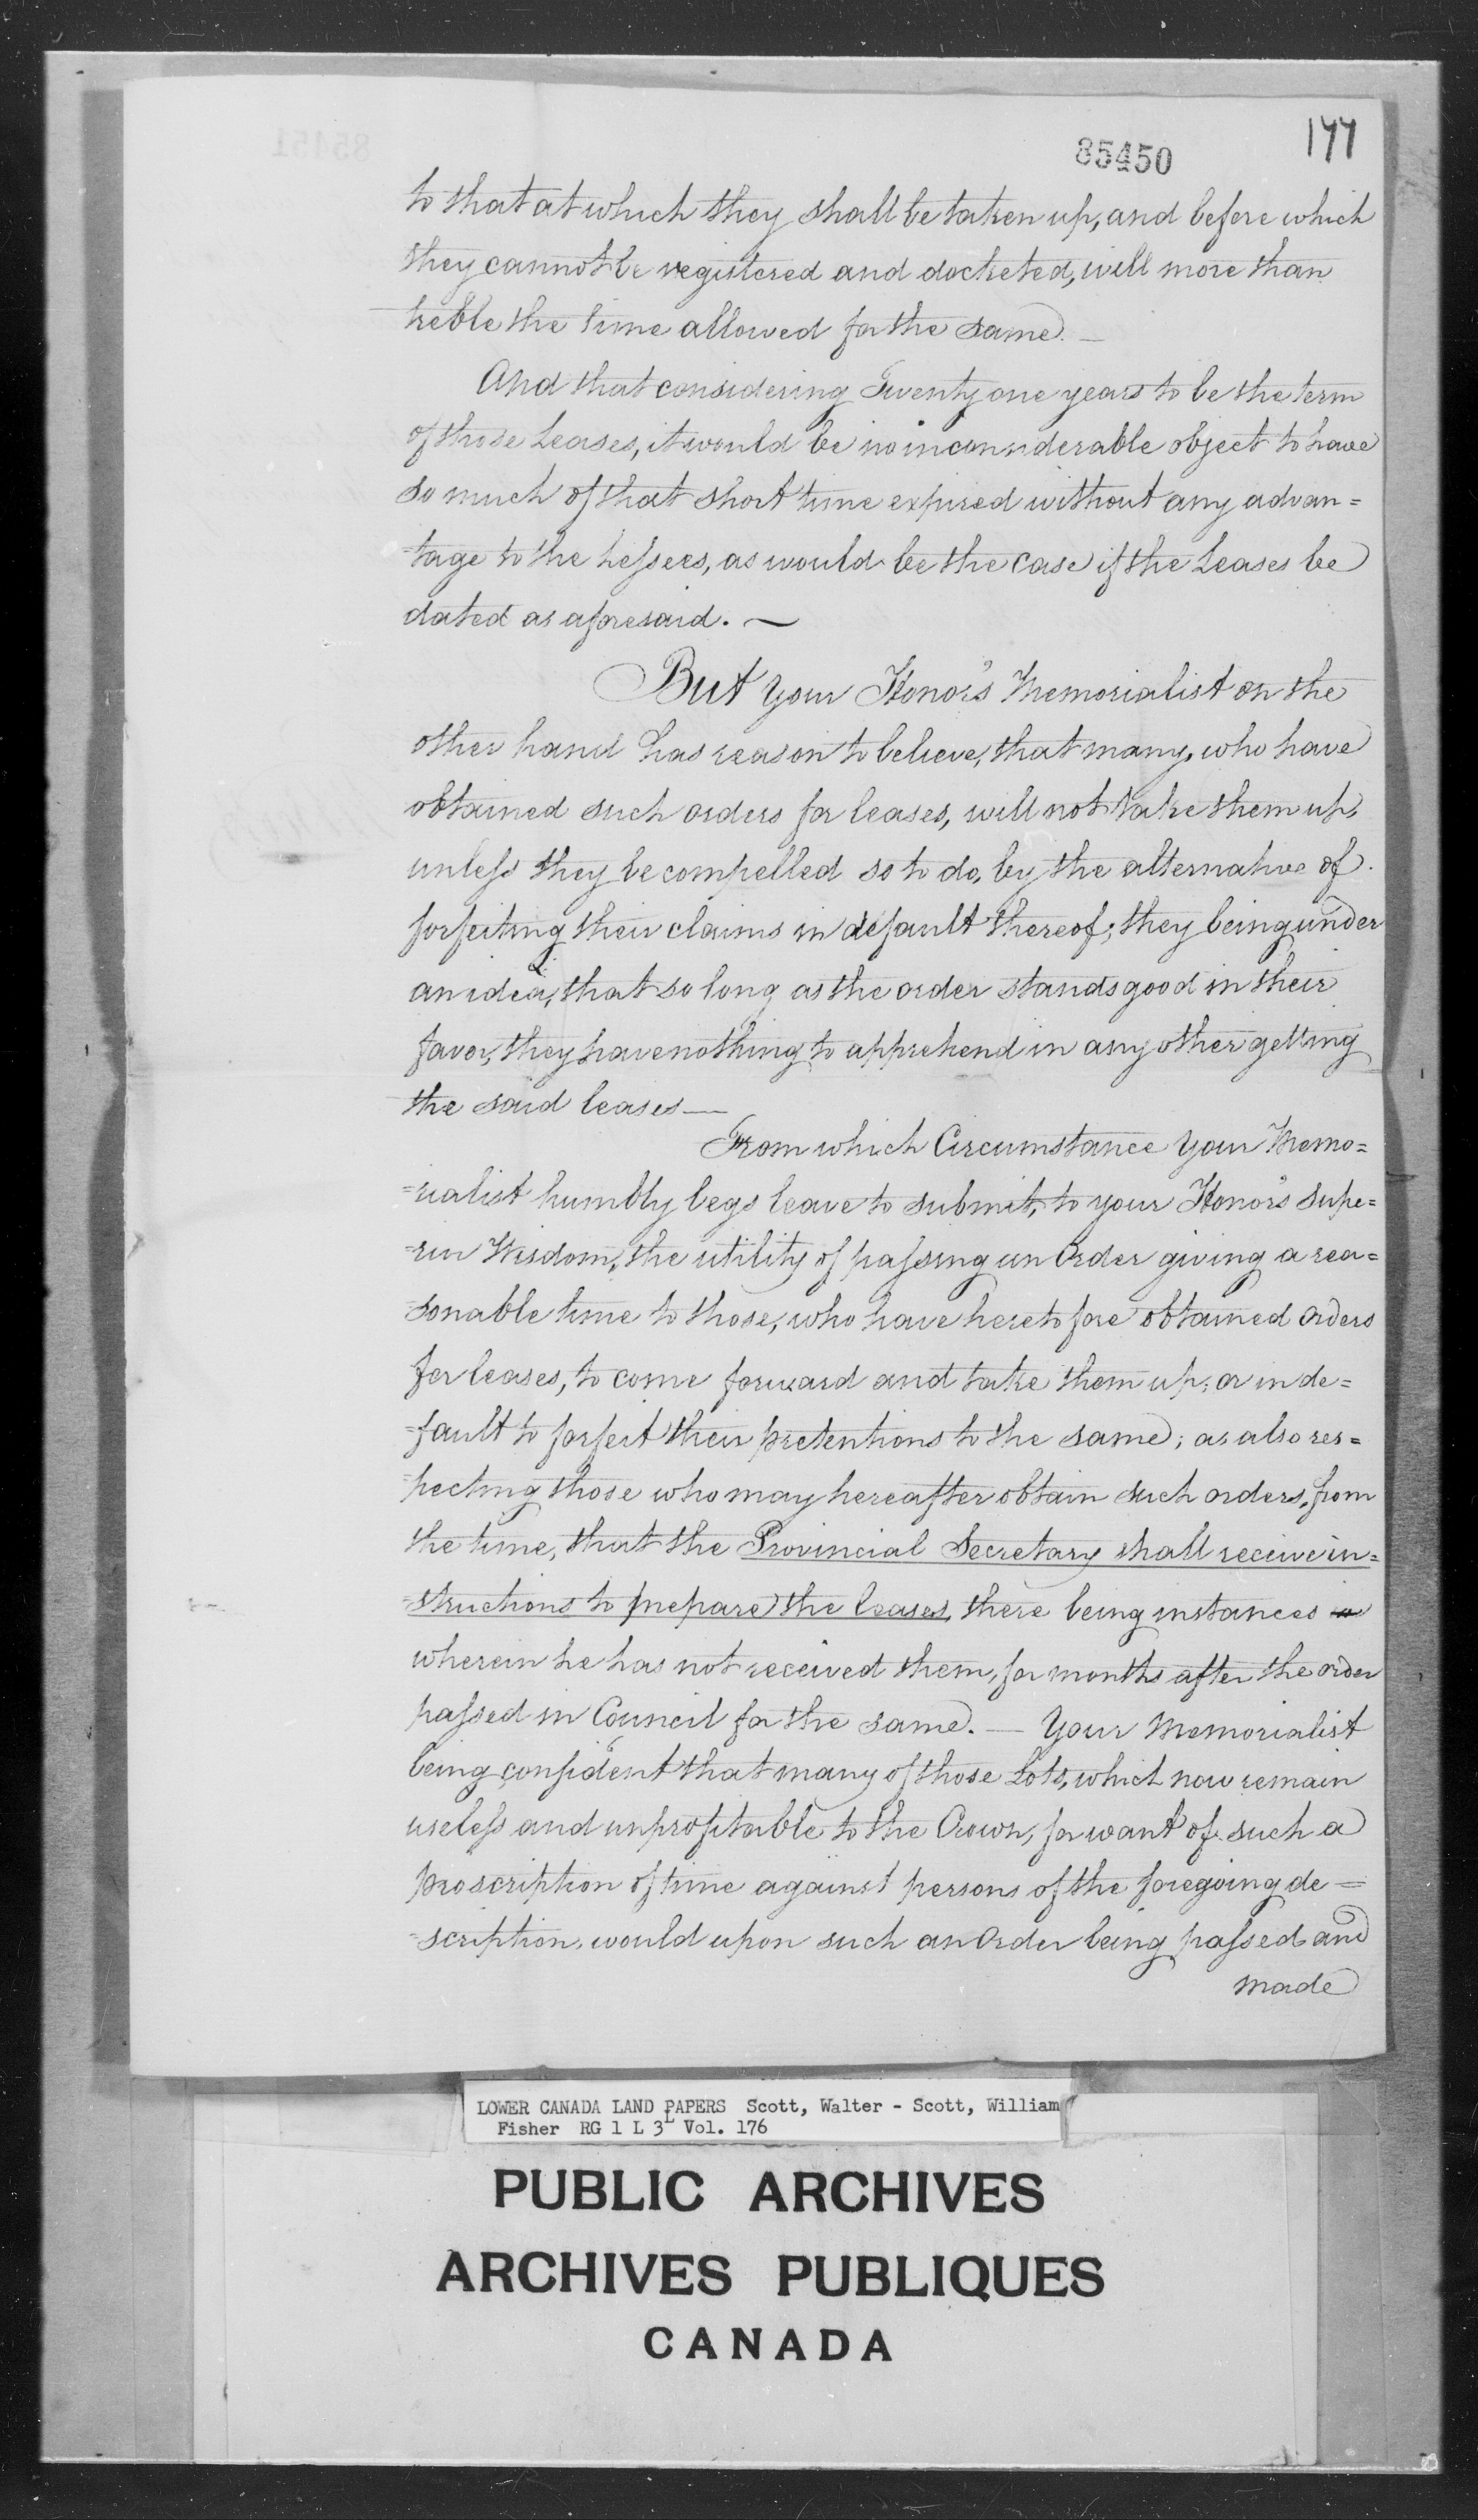 177
85450
to that at which they shall be taken up, and before which
they cannot be registered and docketed, will more than
treble the time allowed for the same. —
And that considering Twenty one years to be the term
of those Leases, it would be no inconsiderable object to have
so much of that short time expired without any advan=
=tage to the Lessees, as would be the case if the Leases be
dated as aforesaid. —
But your Honor's Memorialist on the
other hand has reason to believe, that many, who have
obtained such orders for leases, will not take them up,
unless they be compelled so to do, by the alternative of
forfeiting their claims in default thereof; they being under
an idea, that so long as the order stands good in their
favor, they have nothing to apprehend in any other getting
the said leases —
From which Circumstance Your Memo=
=rialist humbly begs leave to submit, to your Honor's supe=
=rior Wisdom, the utility of passing an Order giving a rea=
=sonable time to those, who have heretofore obtained orders
for leases, to come forward and take them up; or in de=
=fault to forfeit their pretentions to the same; as also res=
=pecting those who may hereafter obtain such orders, from
the time, that the Provincial Secretary shall receive in=
=structions to prepare the leases, there being instances
wherein he has not received them, for months after the order
passed in Council for the same. — Your Memorialist
being confident that many of those Lots, which now remain
useless and unprofitable to the Crown, for want of such a
proscription of time against persons of the foregoing de=
=scription, would upon such an Order being passed and
made
LOWER CANADA LAND PAPERS Scott, Walter - Scott, William
Fisher RG 1 L 3L Vol. 176
PUBLIC ARCHIVES
ARCHIVES PUBLIQUES
CANADA